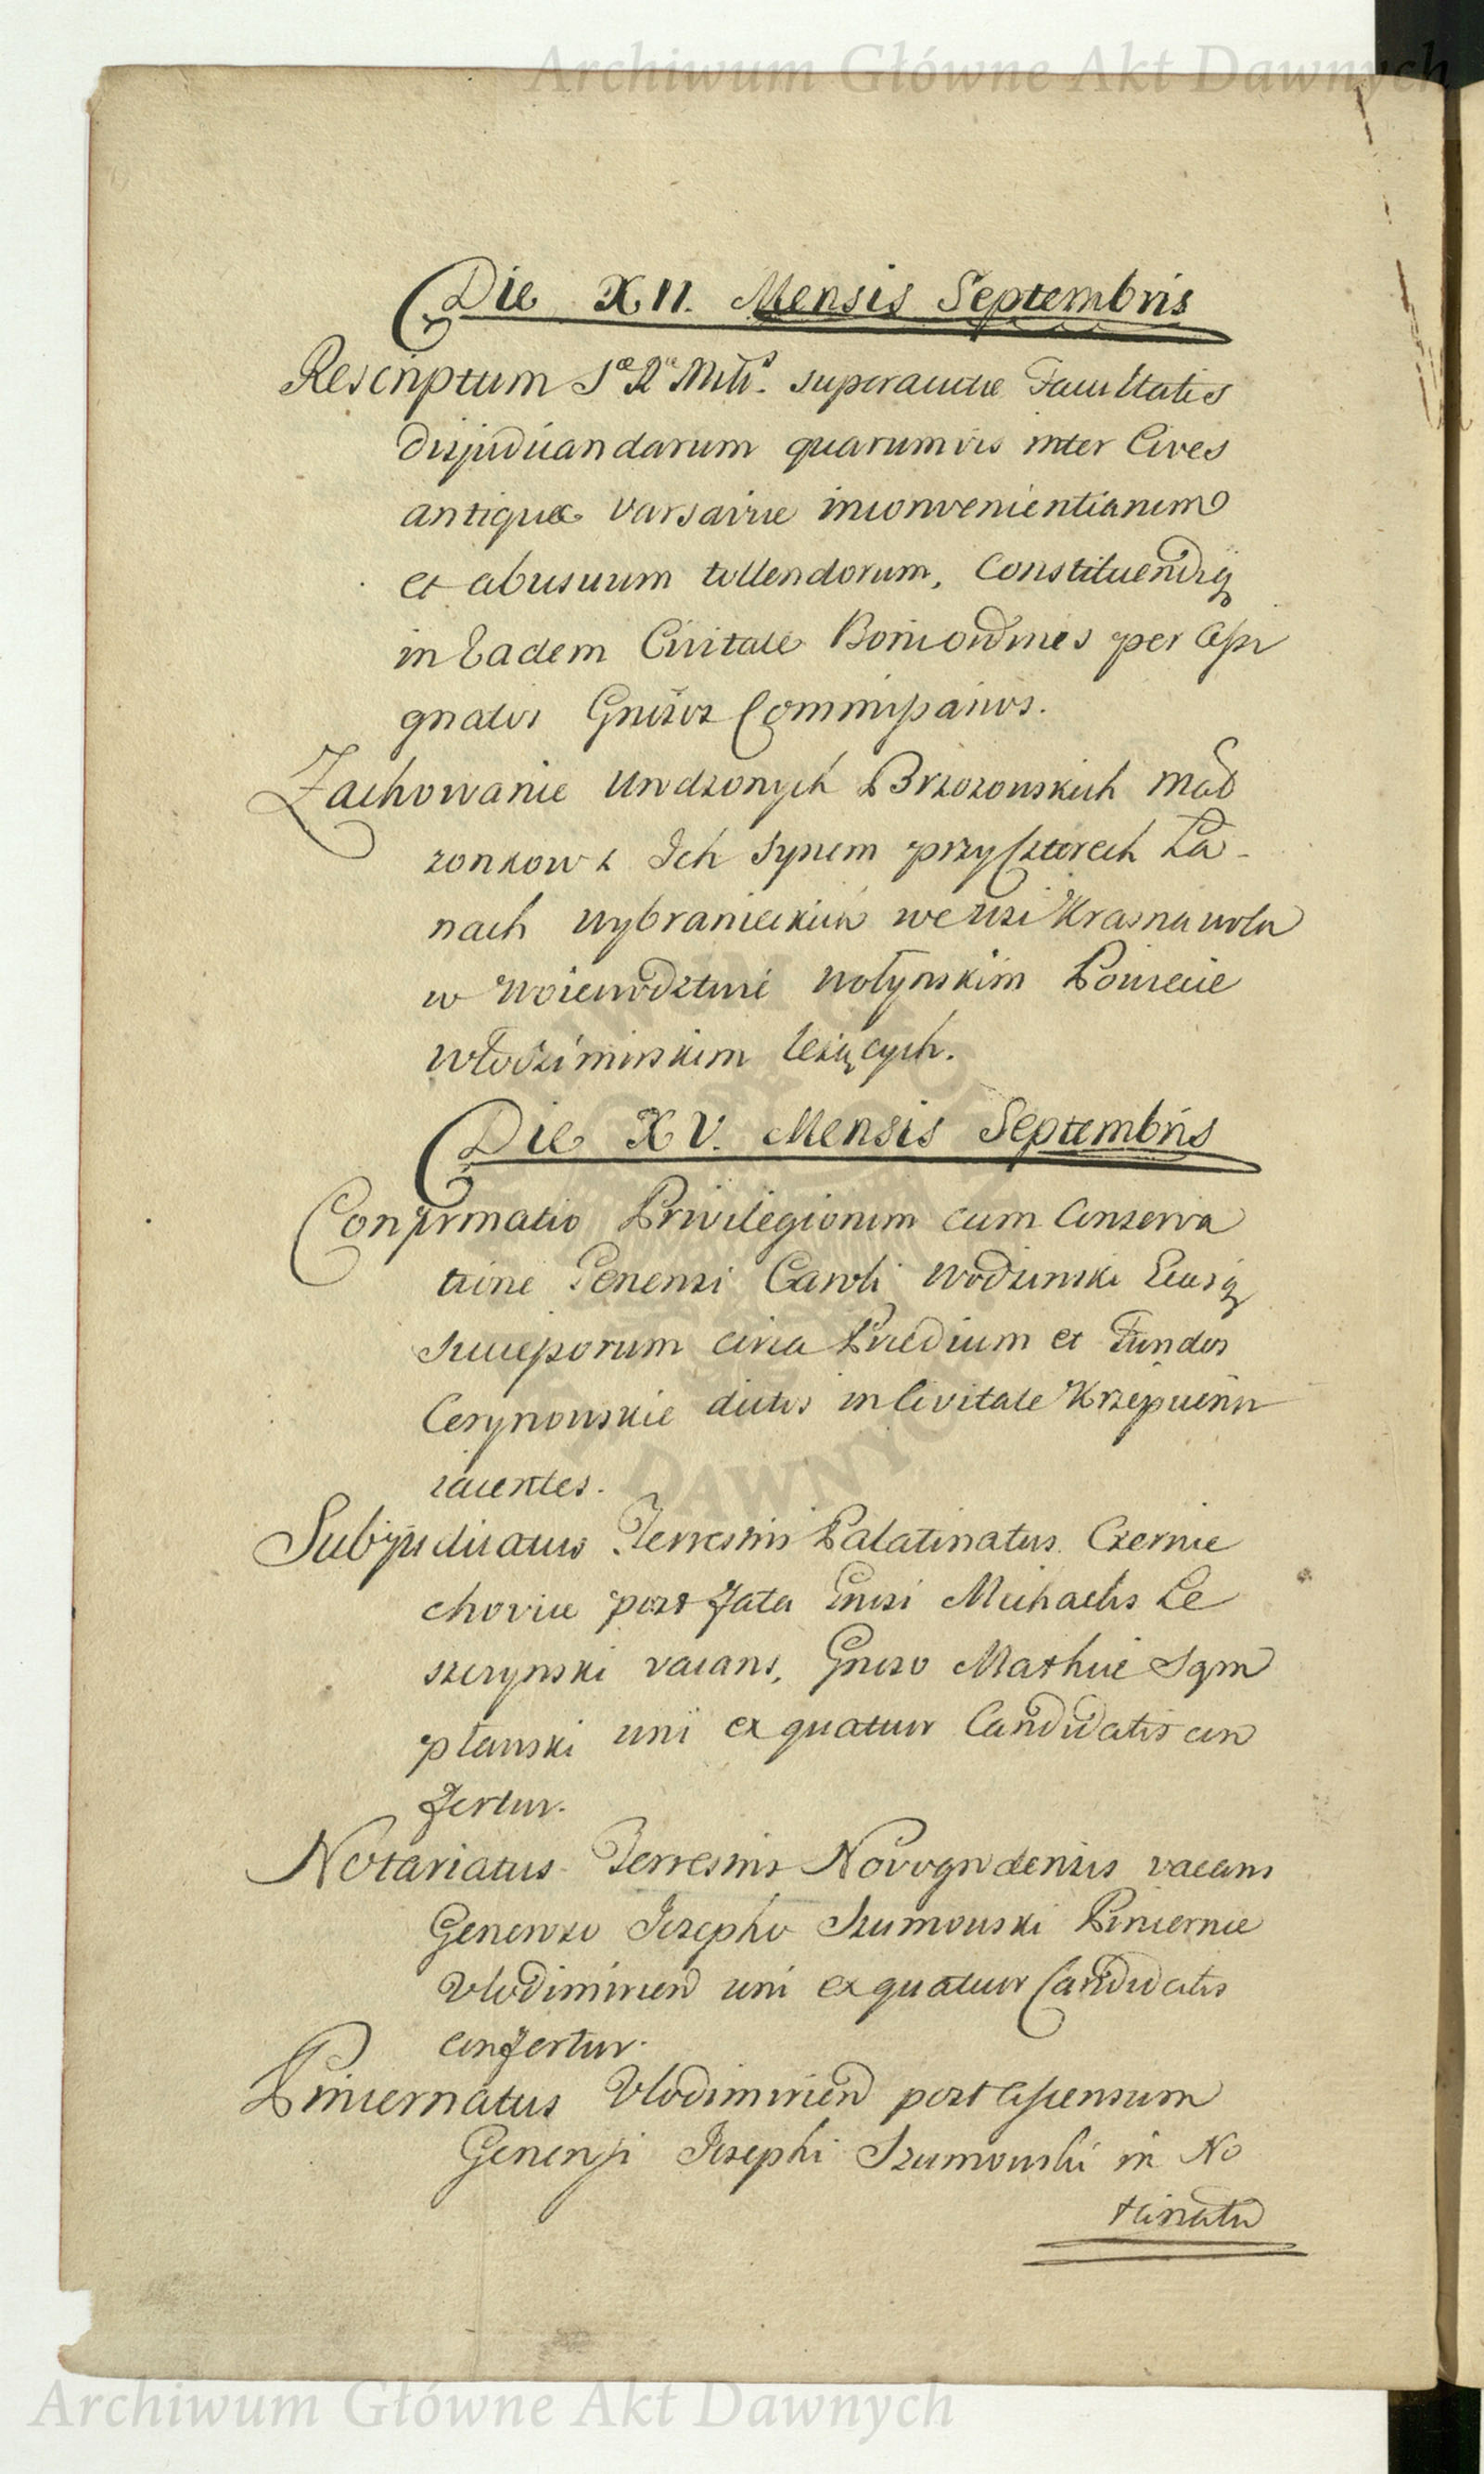 Archiwum Główne Akt Dawnych
Die XII. Mensis Septembris
Rescriptum Sæ Ræ Mtis. super audae Facultatis
disjudicandarum quarumvis inter Cives
antiquae Varsaviae inconvenientiarum
et abusuum tollendorum, Constituendiq
in Eadem Civitate Boni ordinis per Assi
gnatos Gnosos Commissarios.
Zachowanie Urodzonych Brzozowskich Mał
zonkow z Ich Synem przy Czterech Ła-
nach Wybranieckich we Wsi Krasna wola
w Woiewodztwie Wołynskim Powiecie
Włodzimirskim leżących.
Die XV. Mensis Septembris
Confirmatio Privilegiorum cum Conserva
tione Generosi Caroli Wodzinski Eiusq
Successorum circa Praedium et Fundos
Cerynowskie dictos in Civitate Krzepicensi
iacentes.
Subjudicatus Terrestris Palatinatus Czernie
choviae post Fata Gnosi Michaelis Le
szczynski vacans, Gnoso Mathiae
uni ex quatuor Candidatis con
fertur.
Notariatus Terrestris Novogrodensis vacans
Generoso Josepho Szumowski Pincernae
Vlodimirien uni ex quatuor Candidatis
confertur.
Pincernatus Vlodimirien post Ascensum
Generosi Josephi Szumowski in No
tariatu
Archiwum Główne Akt Dawnych